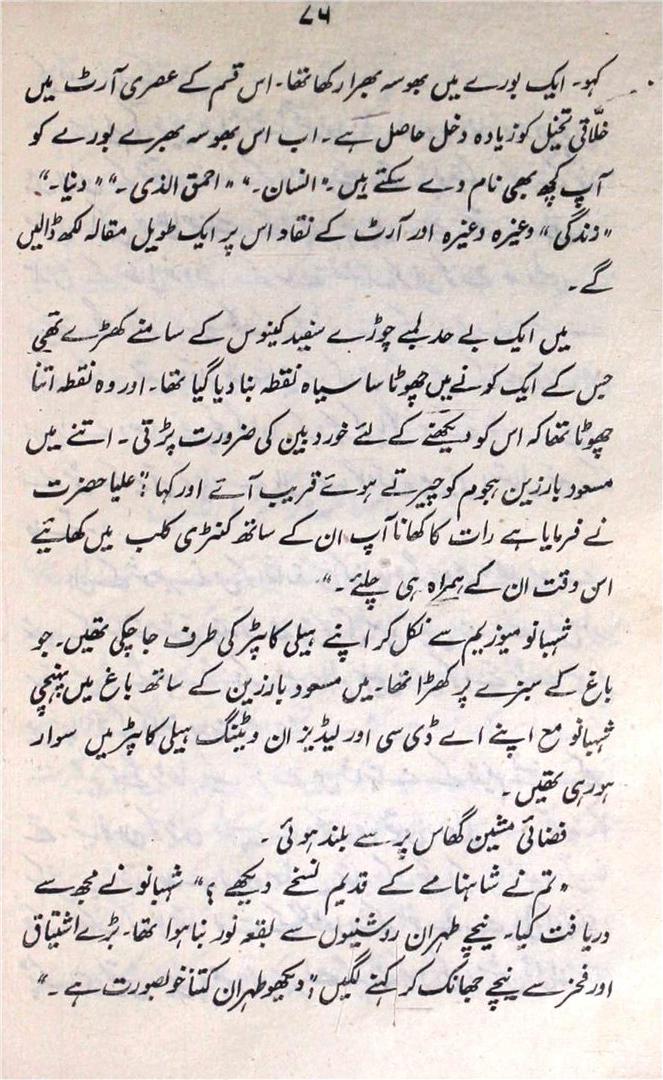 ۷۶
کہو۔ ایک بورے میں بھوسہ بھرا رکھا تھا۔ اس قسم کے عصری آرٹ میں
خلّاقی تخیل کو زیادہ دخل حاصل ہے۔ اب اس بھوسہ بھرے بورے کو
آپ کچھ بھی نام دے سکتے ہیں۔ "انسان۔" "احمق الذی۔" "دنیا۔"
"زندگی" وغیرہ وغیرہ اور آرٹ کے نقاد اس پر ایک طویل مقالہ لکھ ڈالیں
گے۔
میں ایک بے حد لمبے چوڑے سفید کینوس کے سامنے کھڑے تھی
جس کے ایک کونے میں چھوٹا سا سیاہ نقطہ بنا دیا گیا تھا۔ اور وہ نقطہ اتنا
چھوٹا تھا کہ اس کو دیکھنے کے لئے خوردبین کی ضرورت پڑتی۔ اتنے میں
مسعود بارزین ہجوم کو چیرتے ہوئے قریب آئے اور کہا: "علیا حضرت
نے فرمایا ہے رات کا کھانا آپ ان کے ساتھ کنٹری کلب میں کھائیے
اس وقت ان کے ہمراہ ہی چلئے۔"
شہبانو میوزیم سے نکل کر اپنے ہیلی کاپٹر کی طرف جا چکی تھیں۔ جو
باغ کے سبزے پر کھڑا تھا۔ میں مسعود بارزین کے ساتھ باغ میں پہنچی
شہبانو مع اپنے اے ڈی سی اور لیڈیز ان ویٹنگ ہیلی کاپٹر میں سوار
ہو رہی تھیں۔
فضائی مشین گھاس پر سے بلند ہوئی۔
"تم نے شاہنامے کے قدیم نسخے دیکھے؟" شہبانو نے مجھ سے
دریافت کیا۔ نیچے طہران روشنیوں سے بقعہ نور بنا ہوا تھا۔ بڑے اشتیاق
اور فخر سے نیچے جھانک کر کہنے لگیں: "دیکھو طہران کتنا خوبصورت ہے۔"